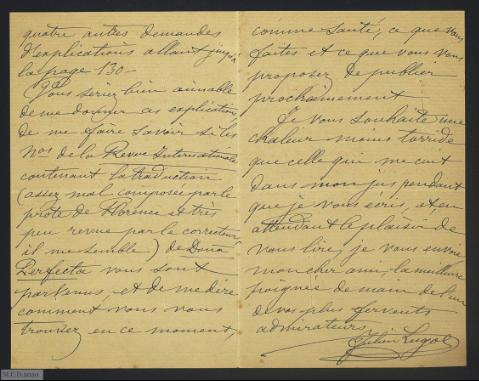 quatre autres demandes
d'explications allant jusqu'à
la page 130 -
Vous seriez bien aimable
de me donner ces explications,
de me faire savoir si les
Nos de la Revue Internationale
contenant la traduction
(assez mal composée par le
prote de Florence et très
peu revue par le correcteur
il me semble) de Doña
Perfecta vous sont
parvenus, et de me dire
comment vous vous
trouvez en ce moment,
comme santé, ce que vous
faites et ce que vous vous
proposez de publier
prochainement
Je vous souhaite une
chaleur moins torride
que celle qui me cuit
dans mon jus pendant
que je vous écris, et, en
attendant le plaisir de
vous lire, je vous envoie
mon cher ami, la meilleure
poignée de main de l'un
de vos plus fervents
admirateurs
Julien Lugol
M.C.D. 2020